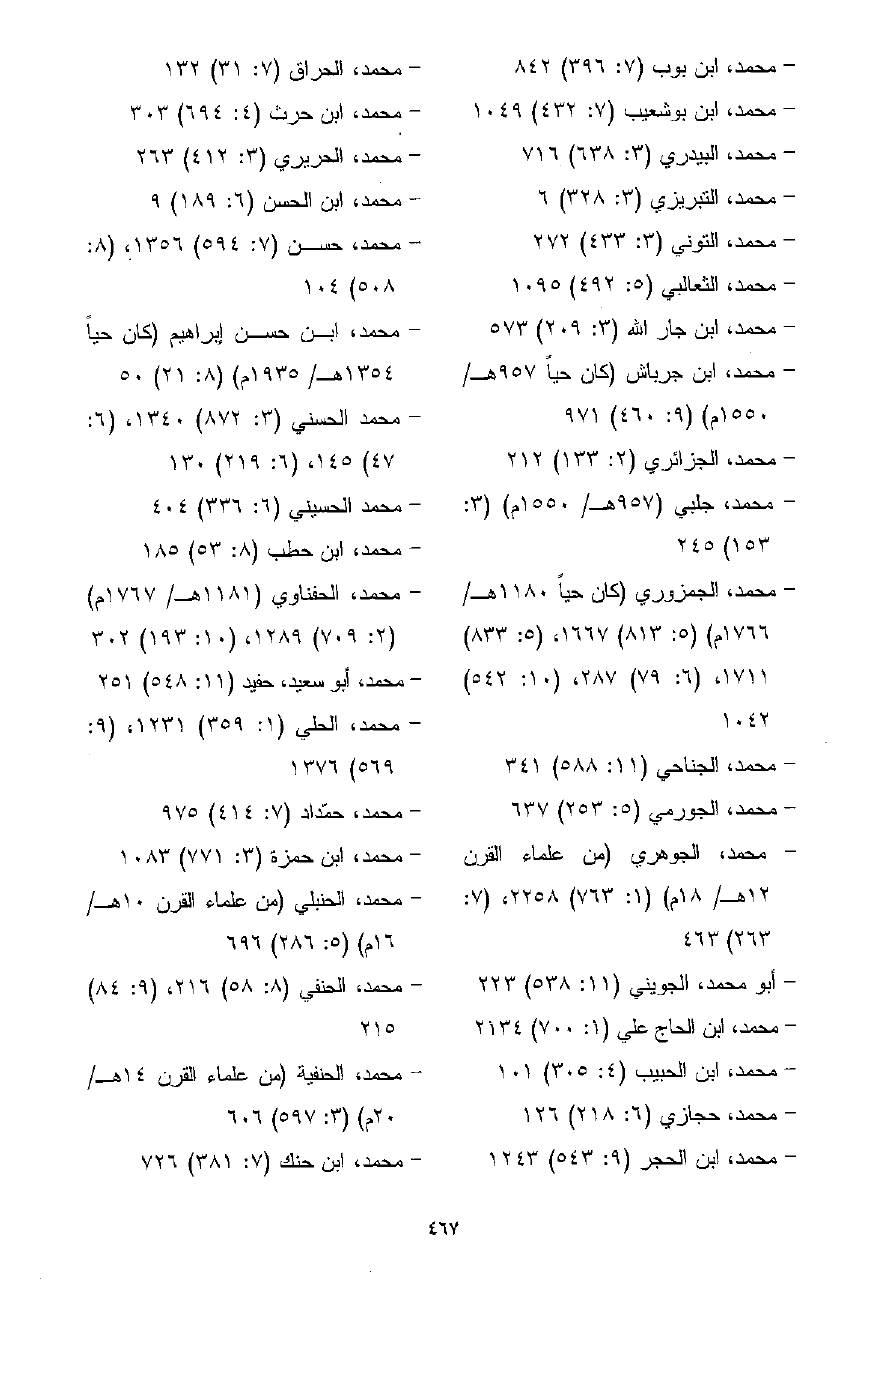 - محمد، ابن بوب (٧: ٣٩٦) ٨٤٢
- محمد، ابن بوشعيب (٧: ٤٣٢) ١٠٤٩
- محمد، البيدري (٣: ٦٣٨) ٧١٦
- محمد، التبريزي (٣: ٣٢٨) ٦
- محمد، التوني (٣: ٤٣٣) ٢٧٢
- محمد، الثعالبي (٥: ٤٩٢) ١٠٩٥
- محمد، ابن جار الله (٣: ٢٠٩) ٥٧٣
- محمد، ابن جرباش (كان حياً ٩٥٧هـ/
١٥٥٠م) (٩: ٤٦٠) ٩٧١
- محمد، الجزائري (٢: ١٣٣) ٢١٢
- محمد، جلبي (٩٥٧هـ/ ١٥٥٠م) (٣:
١٥٣) ٢٤٥
- محمد، الجمزوري (كان حياً ١١٨٠هـ/
١٧٦٦م) (٥: ٨١٣) ١٦٦٧، (٥: ٨٣٣)
١٧١١، (٦: ٧٩) ٢٨٧، (١٠: ٥٤٢)
١٠٤٢
- محمد، الجناحي (١١: ٥٨٨) ٣٤١
- محمد، الجورمي (٥: ٢٥٣) ٦٣٧
- محمد، الجوهري (من علماء القرن
١٢هـ/ ١٨م) (١: ٧٦٣) ٢٢٥٨، (٧:
٢٦٣) ٤٦٣
- أبو محمد، الجويني (١١: ٥٣٨) ٢٢٣
- محمد، ابن الحاج علي (١: ٧٠٠) ٢١٣٤
- محمد، ابن الحبيب (٤: ٣٠٥) ١٠١
- محمد، حجازي (٦: ٢١٨) ١٢٦
- محمد، ابن الحجر (٩: ٥٤٣) ١٢٤٣
- محمد، الحراق (٧: ٣١) ١٣٢
- محمد، ابن حرث (٤: ٦٩٤) ٣٠٣
- محمد، الحريري (٣: ٤١٢) ٢٦٣
- محمد، ابن الحسن (٦: ١٨٩) ٩
- محمد، حسن (٧: ٥٩٤) ١٣٥٦، (٨:
٥٠٨) ١٠٤
- محمد، ابن حسن إبراهيم (كان حياً
١٣٥٤هـ/ ١٩٣٥م) (٨: ٢١) ٥٠
- محمد الحسني (٣: ٨٧٢) ١٣٤٠، (٦:
٤٧) ١٤٥، (٦: ٢١٩) ١٣٠
- محمد الحسيني (٦: ٣٣٦) ٤٠٤
- محمد، ابن حطب (٨: ٥٣) ١٨٥
- محمد، الحفناوي (١١٨١هـ/ ١٧٦٧م)
(٢: ٧٠٩) ١٢٨٩، (١٠: ١٩٣) ٣٠٢
- محمد، أبو سعيد، حفيد (١١: ٥٤٨) ٢٥١
- محمد، الحلي (١: ٣٥٩) ١٢٣١، (٩:
٥٦٩) ١٣٧٦
- محمد، حمّداد (٧: ٤١٤) ٩٧٥
- محمد، ابن حمزة (٣: ٧٧١) ١٠٨٣
- محمد، الحنبلي (من علماء القرن ١٠هـ/
١٦م) (٥: ٢٨٦) ٦٩٦
- محمد، الحنفي (٨: ٥٨) ٢١٦، (٩: ٨٤)
٢١٥
- محمد، الحنفية (من علماء القرن ١٤هـ/
٢٠م) (٣: ٥٩٧) ٦٠٦
- محمد، ابن حنك (٧: ٣٨١) ٧٢٦
٤٦٧